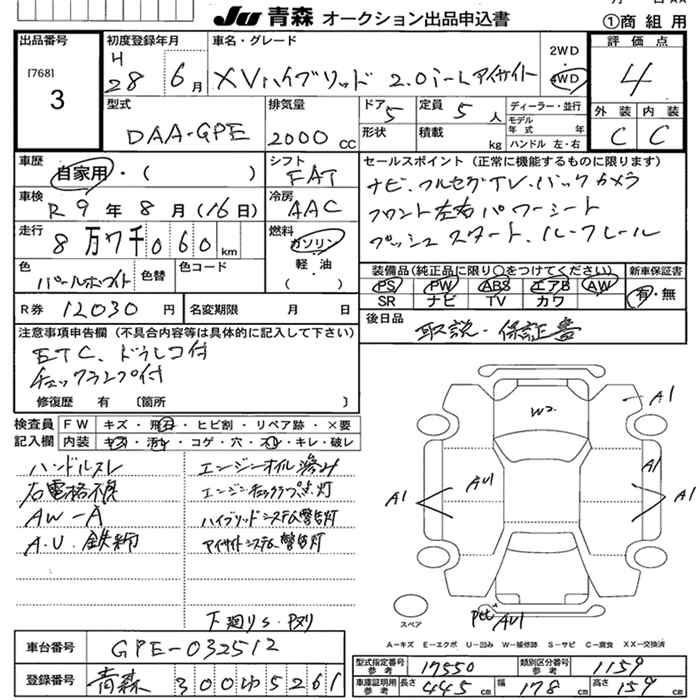 JU 青森 オークション出品申込書
①商組用
出品番号
[768]
3
初度登録年月
H
28 6月
車名・グレード
XVハイブリッド 2.0i-L アイサイト
2WD
4WD
評価点
4
外装 内装
C C
型式
DAA-GPE
排気量
2000 CC
ドア 5
形状
定員 5 人
積載 kg
ディーラー・並行
モデル
年式 年
ハンドル 左・右
車歴
自家用・( )
車検
R 9 年 8 月 (16日)
走行
8万7千060km
色
パールホワイト
色替
色コード
シフト
FAT
冷房
AAC
燃料
ガソリン
軽・油
( ・ )
セールスポイント(正常に機能するものに限ります)
ナビ・フルセグTV・バックカメラ
フロント左右パワーシート
プッシュスタート、ルーフレール
装備品(純正品に限り○をつけてください)
PS PW ABS エアB AW
SR ナビ TV カワ
新車保証書
有・無
R券 12030 円
名変期限 月 日
後日品
取説・保証書
注意事項申告欄(不具合内容等は具体的に記入して下さい)
ETC、ドラレコ付
チェックランプ付
修復歴 有 〔箇所 〕
検査員
記入欄
FW キズ・飛石・ヒビ割・リペア跡・×要
内装 キズ・汚レ・コゲ・穴・スレ・キレ・破レ
ハンドルスレ
右電格不良
AW-A
A.U.鉄錆
エンジンオイル滲み
エンジンチェックランプ点灯
ハイブリッドシステム警告灯
アイサイトシステム警告灯
下廻りS・Pヌリ
W2
A1
AU1
A1
A1
A1
AU1
スペア
A-キズ E-エクボ U-凹み W-補修跡 S-サビ C-腐食 XX-交換済
車台番号
GPE-032512
登録番号
青森 300 ゆ 5261
型式指定番号
参考
17550
類別区分番号
参考
1159
車庫証明用
参考
長さ 445 cm 幅 178 cm 高さ 159 cm